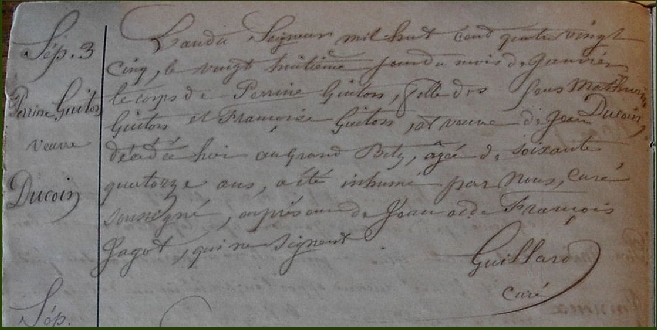 Sép. 3
Perrine Guiton
veuve
Ducoin
L'an du Seigneur mil huit cent quatre vingt
cinq, le vingt huitième jour du mois de Janvier
le corps de Perrine Guiton, fille des feus Mathurin
Guiton et Françoise Guiton, et veuve de Jean Ducoin,
décédé hier au Grand Betz, agée de soixante
quatorze ans, a été inhumé par nous, curé
soussigné, en présence de Jean et de François
Jagot, qui ne signent
Guillard
curé
Sép.